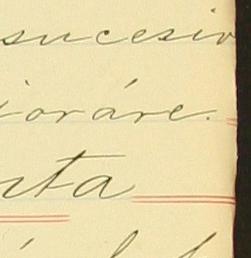 sucesiv
ioráre.
nta